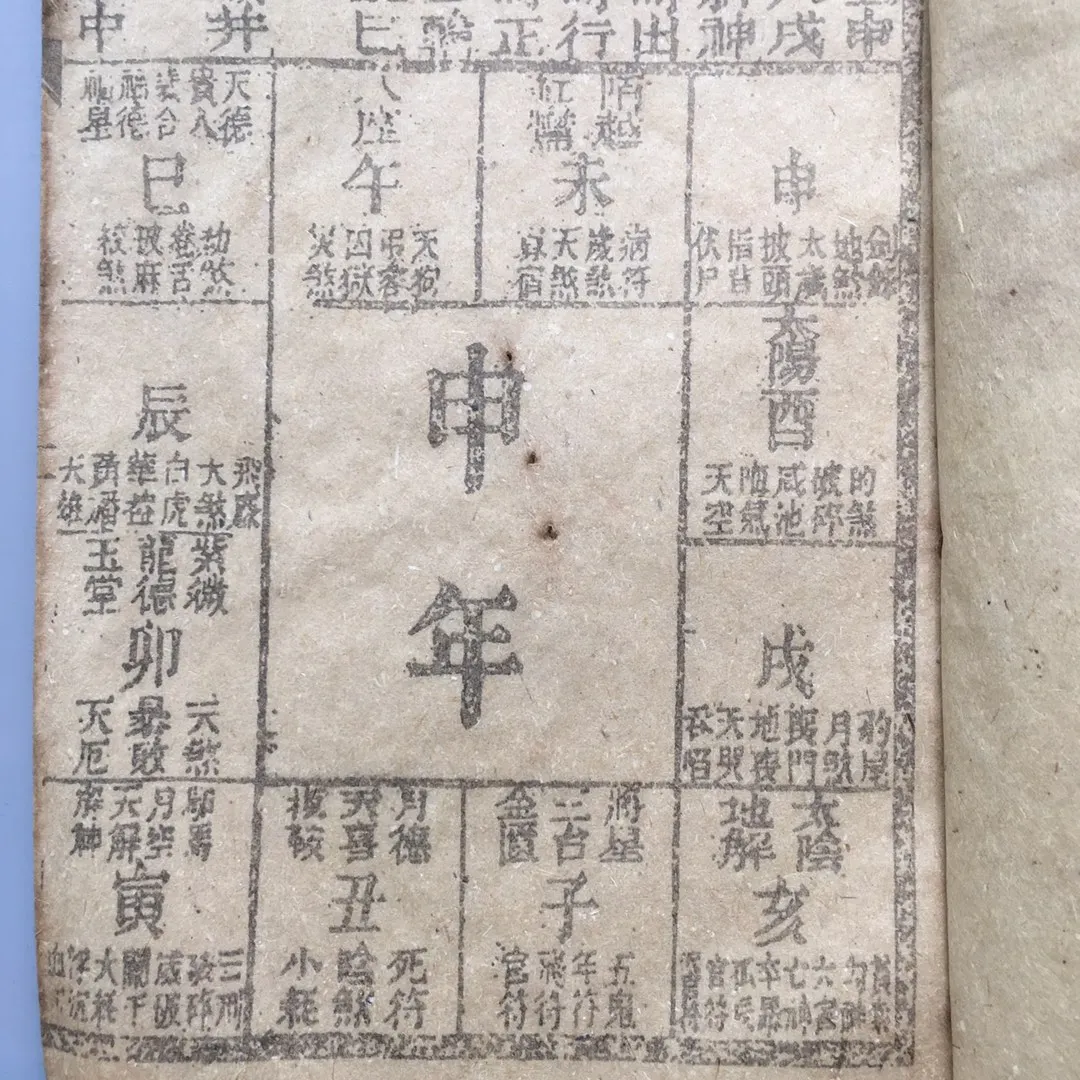 申 戌 神 出 行 正 巳 井 中
申
劍鋒 地煞 太歲 披頭 指背 伏尸
陌越 紅鸞
未
病符 歲煞 天煞 寡宿
八座
午
天狗 吊客 囚獄 災煞
天德 貴人 福德 福星
巳
劫煞 卷舌 披麻 絞煞
太陽
酉
的煞 破碎 咸池 晦氣 天空
申年
辰
飛廉 大煞 白虎 華蓋 黃旛 天雄
戌
豹尾 月煞 喪門 地喪 天哭 吞陷
紫微 龍德 玉堂
卯
天煞 暴敗 天厄
太陰 地解
亥
六害 亡神 卒暴 孤辰 官符
將星 三台 金匱
子
五鬼 年符 官符
月德 天喜
丑
死符 陰煞 小耗
驛馬 月空 天解 解神
寅
三刑 破碎 歲破 闌干 大耗 浮沉